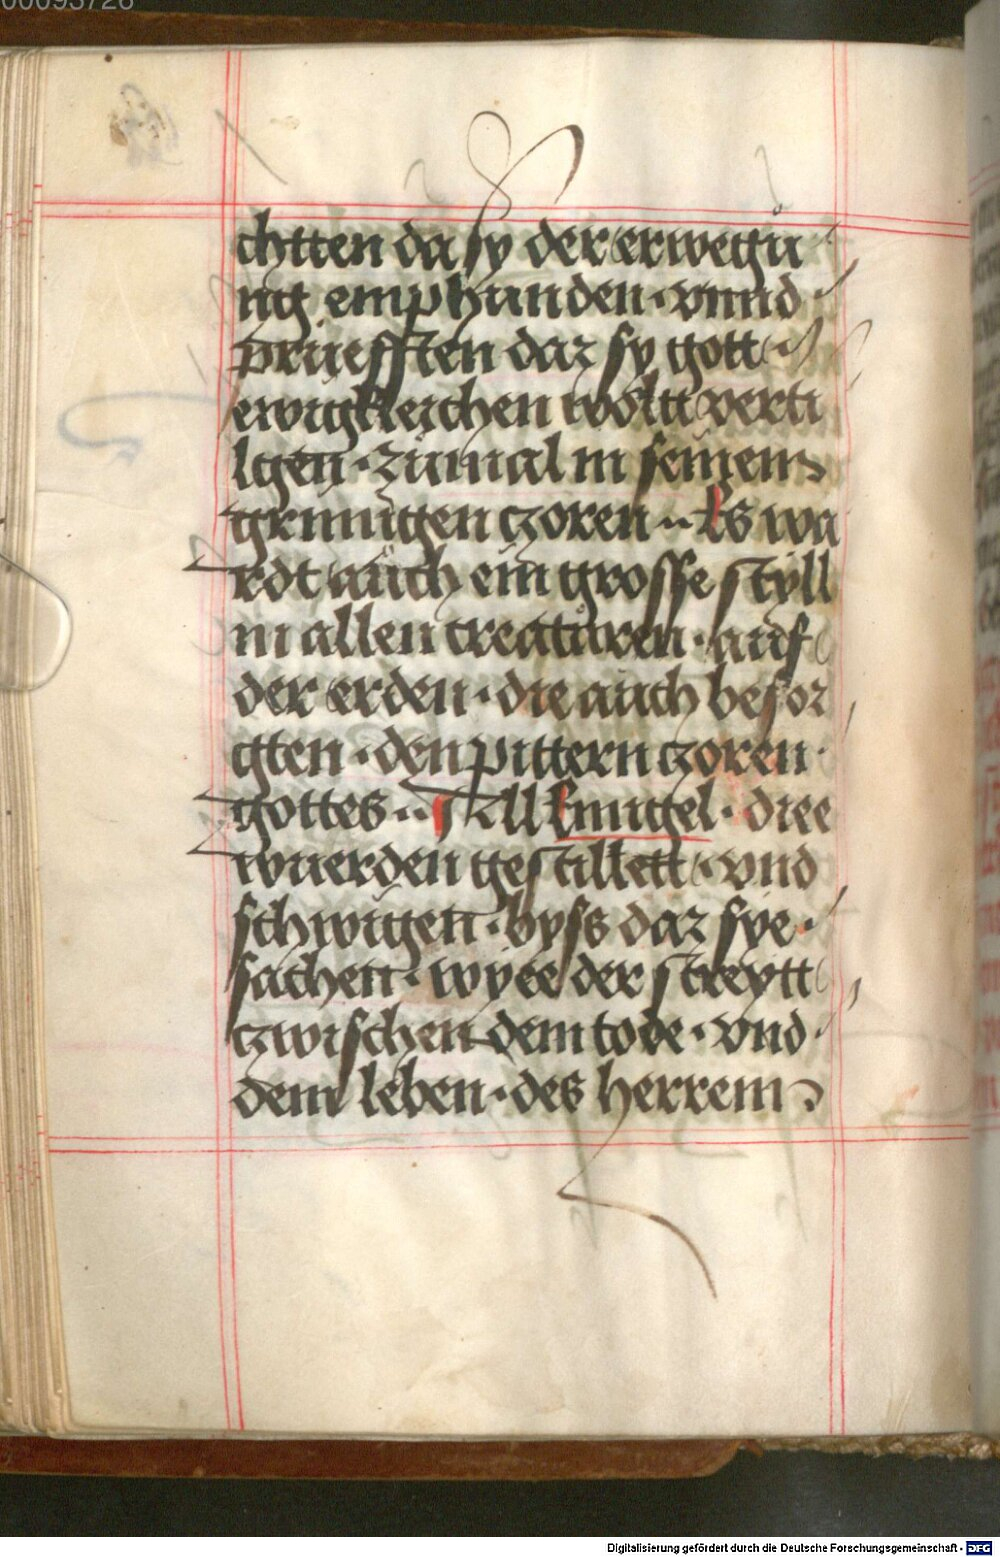 00093728
chtten da sy der erwegu
ng emphunden · vnnd
prüefften daz sy gott
ewigkleichen wöltt verti
lgen · zumal in seinem
grimigen czoren ·· Es wa
rdt auch ein grosse styll
in allen creaturen · auf
der erden · die auch besor
gten · den pittern czoren ·
gottes ·· All Enngel · diee
wuerden gestillett · vnd
schwigen · byss daz sye ·
sachen · wyee der streytt
czwischen dem tode · vnd
dem leben · des herrem
Digitalisierung gefördert durch die Deutsche Forschungsgemeinschaft - DFG